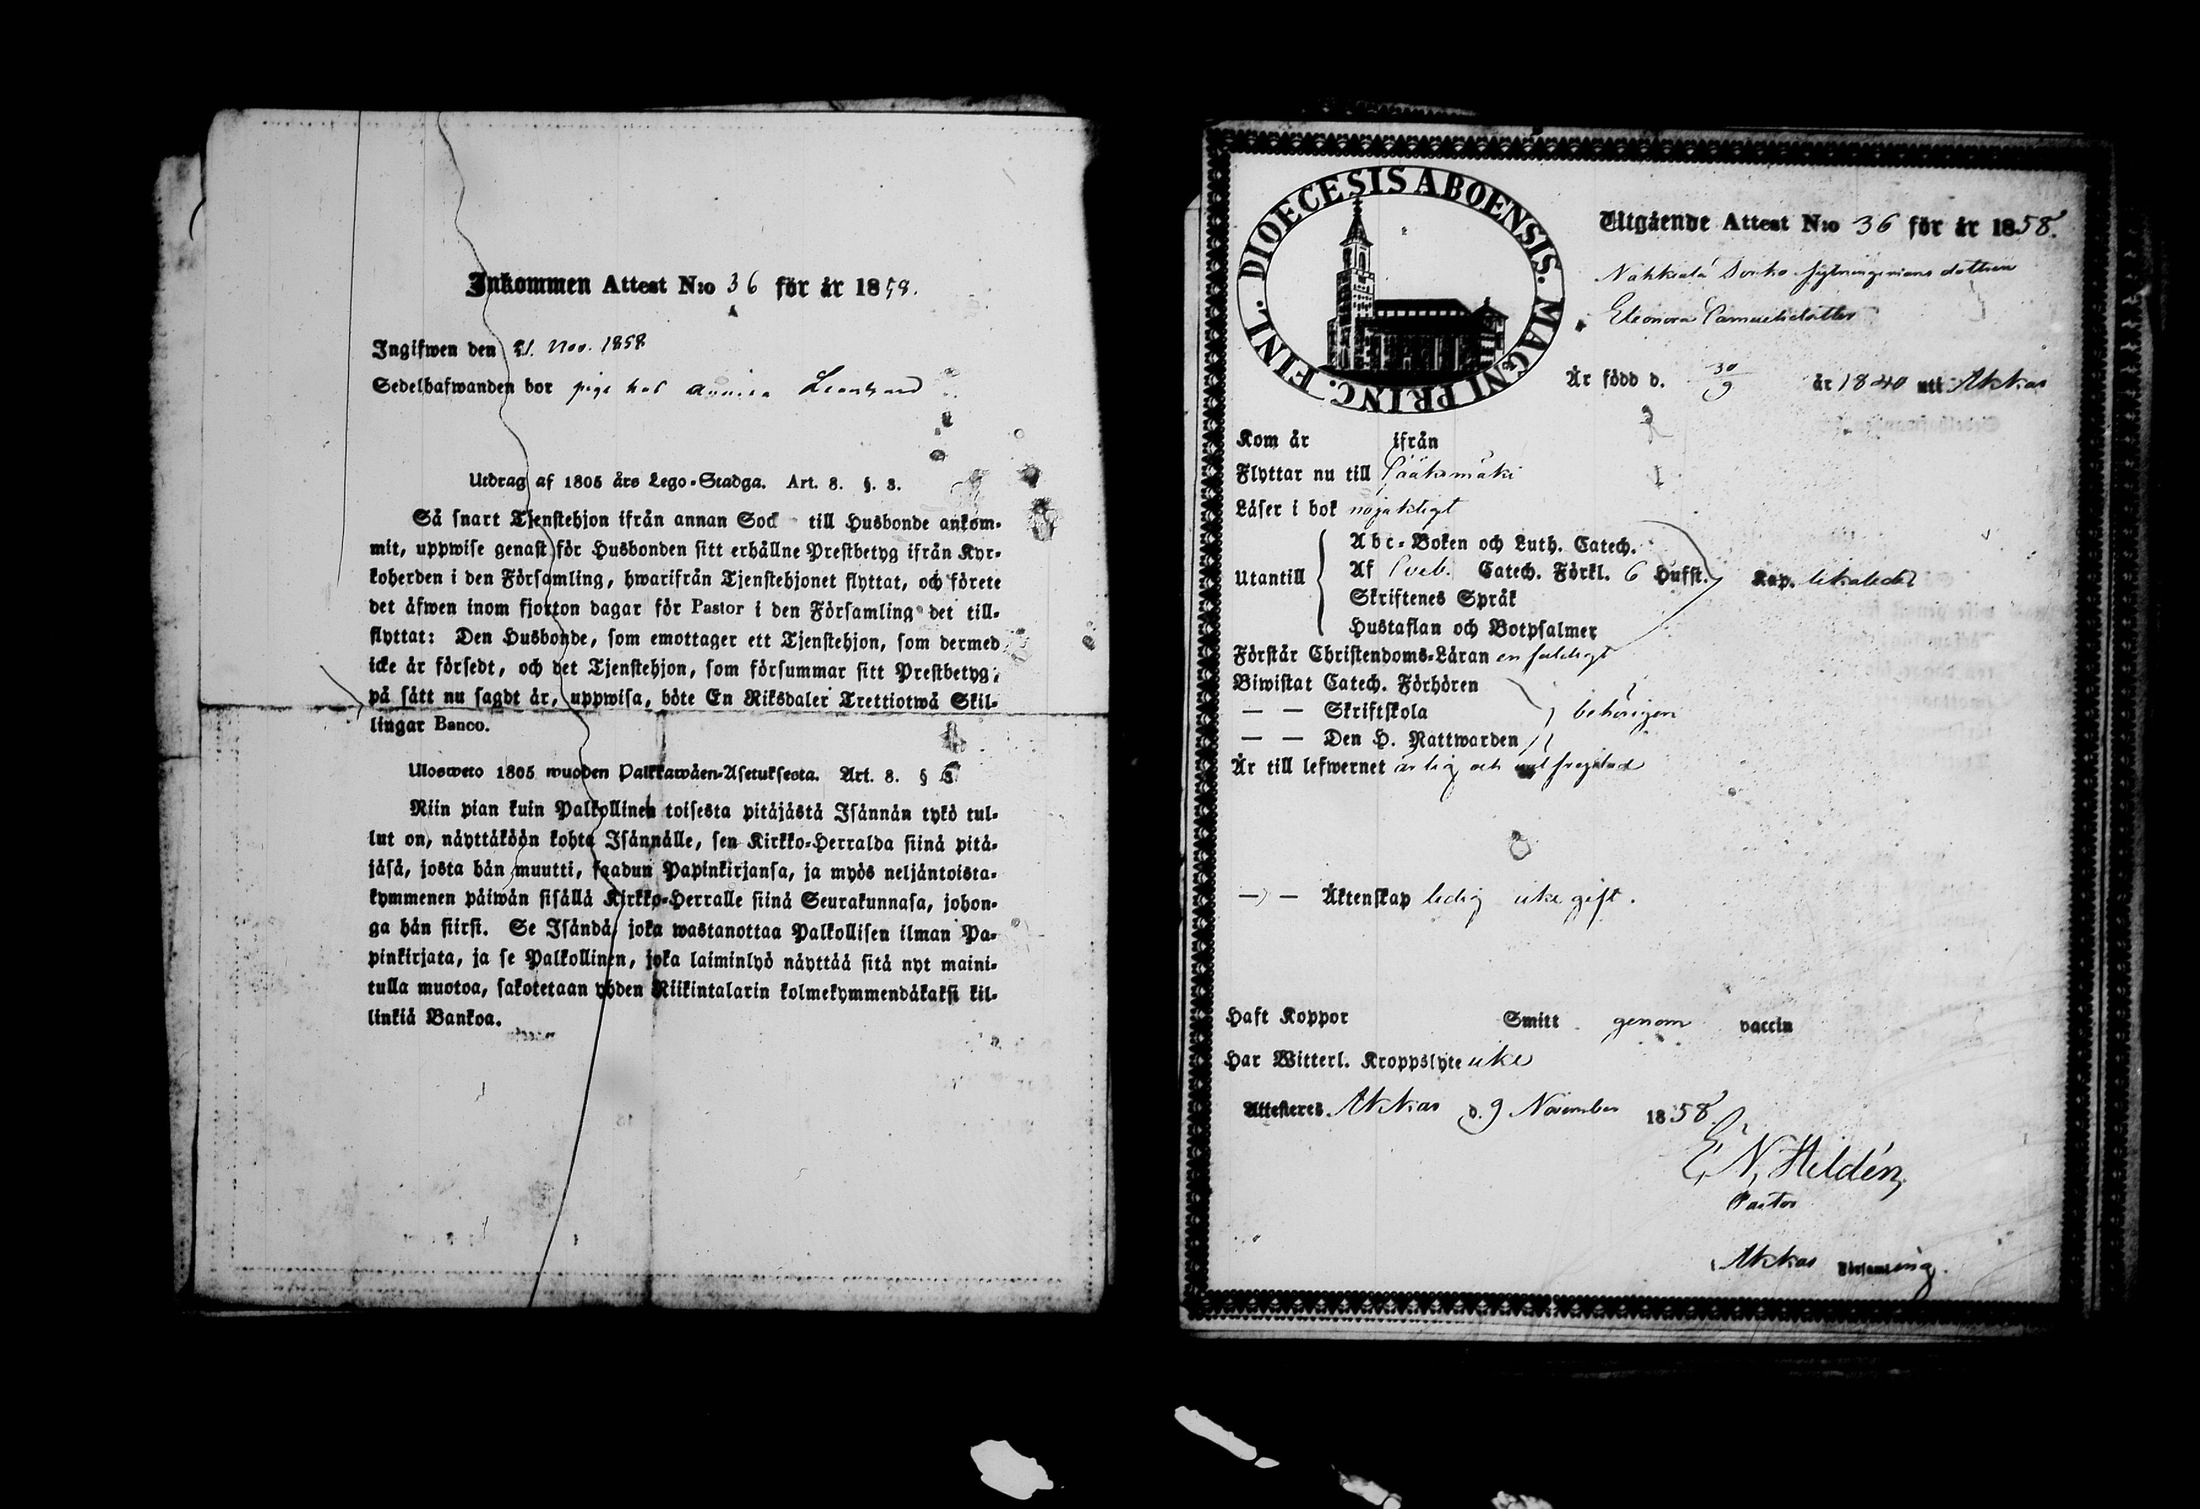 Inkommen Attest N:o 36 för år 1858.
Ingifwen den 21. Nov. 1858
Sedelhafwanden bor piga hos
Utdrag af 1805 års Lego-Stadga. Art. 8. §. 3.
Så snart Tjenstehjon ifrån annan Sock till Husbonde ankom-
mit, uppwise genast för Husbonden sitt erhållne Prestbetyg ifrån Kyr-
koherden i den Församling, hwarifrån Tjenstehjonet flyttat, och förete
det äfwen inom fjorton dagar för Pastor i den Församling det till-
flyttat: Den Husbonde, som emottager ett Tjenstehjon, som dermed
icke är försedt, och det Tjenstehjon, som försummar sitt Prestbetyg,
på sätt nu sagdt är, uppwisa, böte En Riksdaler Trettiotwå Skil-
lingar Banco.
Ulosweto 1805 wuoden Palkkawäen-Asetuksesta. Art. 8. § 3
Niin pian kuin Palkollinen toisesta pitäjästä Isännän tykö tul-
lut on, näyttäköön kohta Isännälle, sen Kirkko-Herralda siinä pitä-
jäsä, josta hän muutti, saadun Papinkirjansa, ja myös neljäntoista-
kymmenen päiwän sisällä Kirkko-Herralle siinä Seurakunnasa, johon-
ga hän siirsi. Se Isändä, joka wastanottaa Palkollisen ilman Pa-
pinkirjata, ja se Palkollinen, joka laiminlyö näyttää sitä nyt maini-
tulla muotoa, sakotetaan yhden Riikintalarin kolmekymmendäkaksi kil-
linkiä Bankoa.
DIOECESIS ABOENSIS. MAGNI PRINC. FINL.
Utgående Attest N:o 36 för år 1858.
Nahkiala dottren
Eleonora Samuelsdotter
Är född d. 30/9 år 1840 uti Akkas
Kom år ifrån
Flyttar nu till Sääksmäki
Läser i bok nöjaktigt
Abc-Boken och Luth. Catech.
Utantill Af Sveb. Catech. Förkl. 6 Hufst. Kap.
Skriftenes Språk
Hustaflan och Botpsalmer
Förstår Christendoms-Läran enfaldigt
Biwistat Catech. Förhören
— — Skriftskola behörigen
— — Den H. Nattwarden
Är till lefwernet ärlig och välfrejdad
— — Äktenskap ledig icke gift.
Haft Koppor Smitt genom vaccin
Har Witterl. Kroppslyte icke
Attesteres Akkas d. 9 November 1858.
E. N. Hildén,
Pastor
i Akkas Församling.